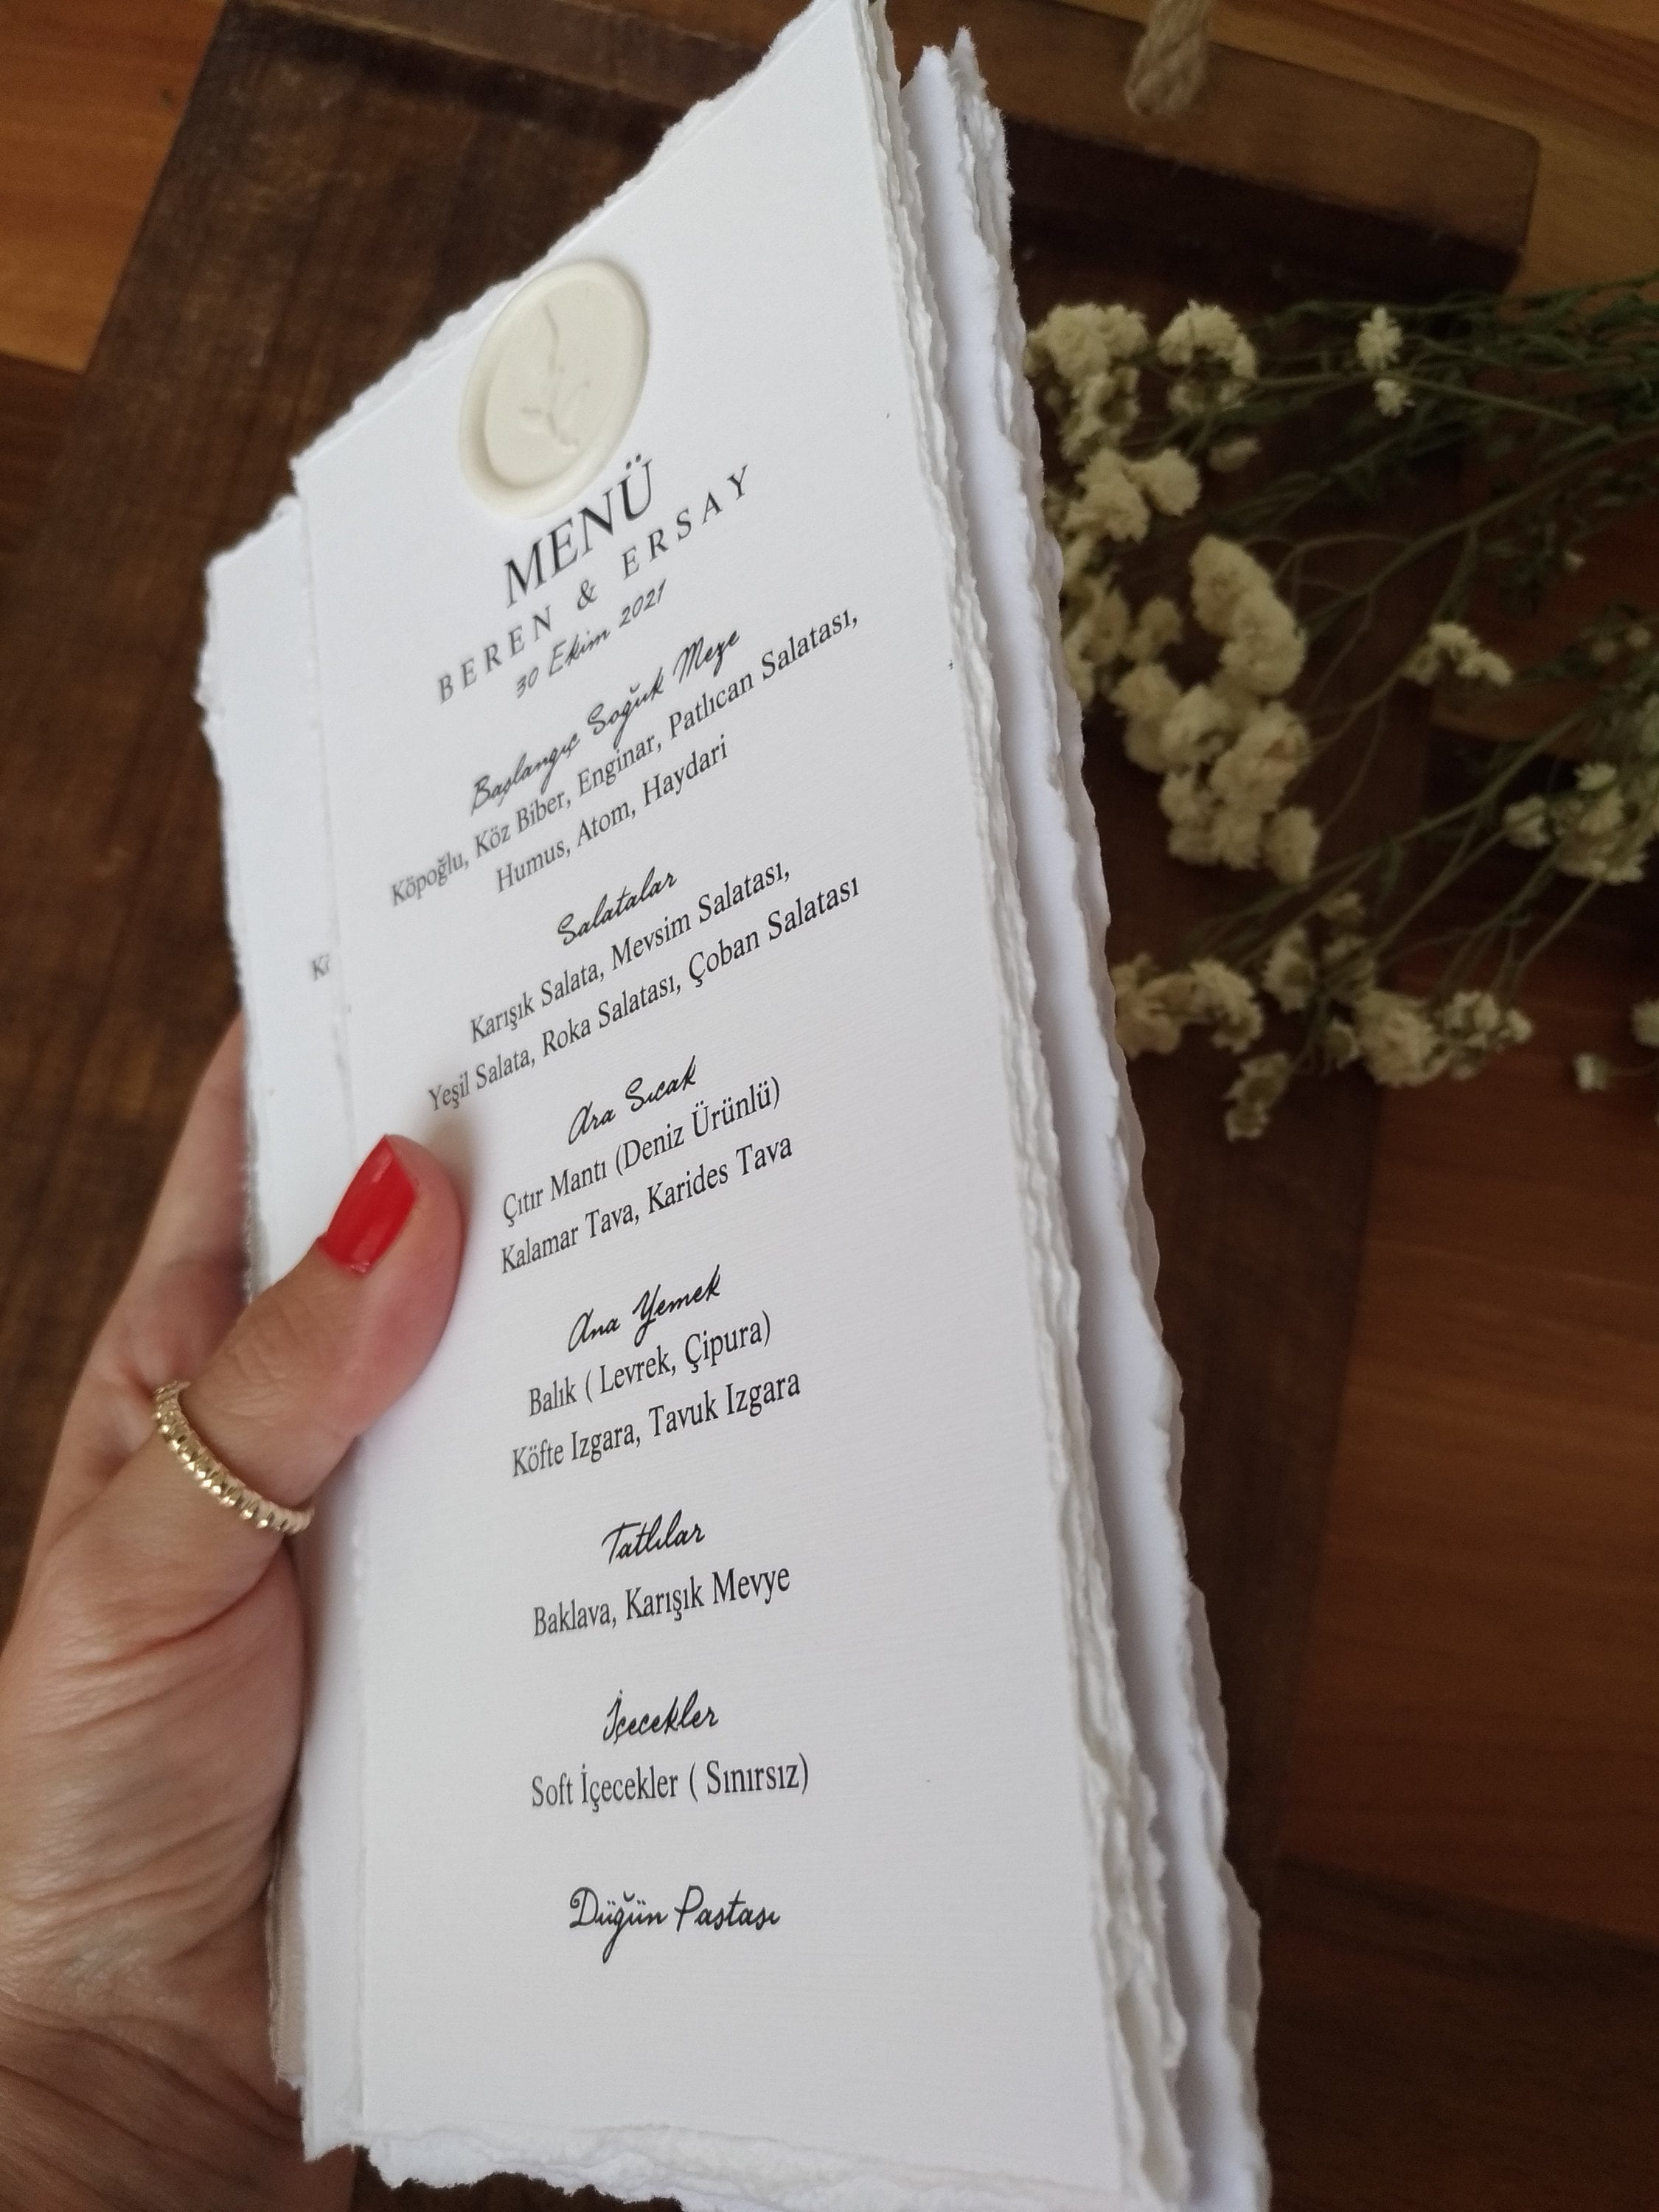 MENÜ
BEREN & ERSAY
30 Ekim 2021
Başlangıç Soğuk Meze
Köpoğlu, Köz Biber, Enginar, Patlıcan Salatası,
Humus, Atom, Haydari
Salatalar
Karışık Salata, Mevsim Salatası,
Yeşil Salata, Roka Salatası, Çoban Salatası
Ara Sıcak
Çıtır Mantı (Deniz Ürünlü)
Kalamar Tava, Karides Tava
Ana Yemek
Balık ( Levrek, Çipura)
Köfte Izgara, Tavuk Izgara
Tatlılar
Baklava, Karışık Mevye
İçecekler
Soft İçecekler ( Sınırsız)
Düğün Pastası